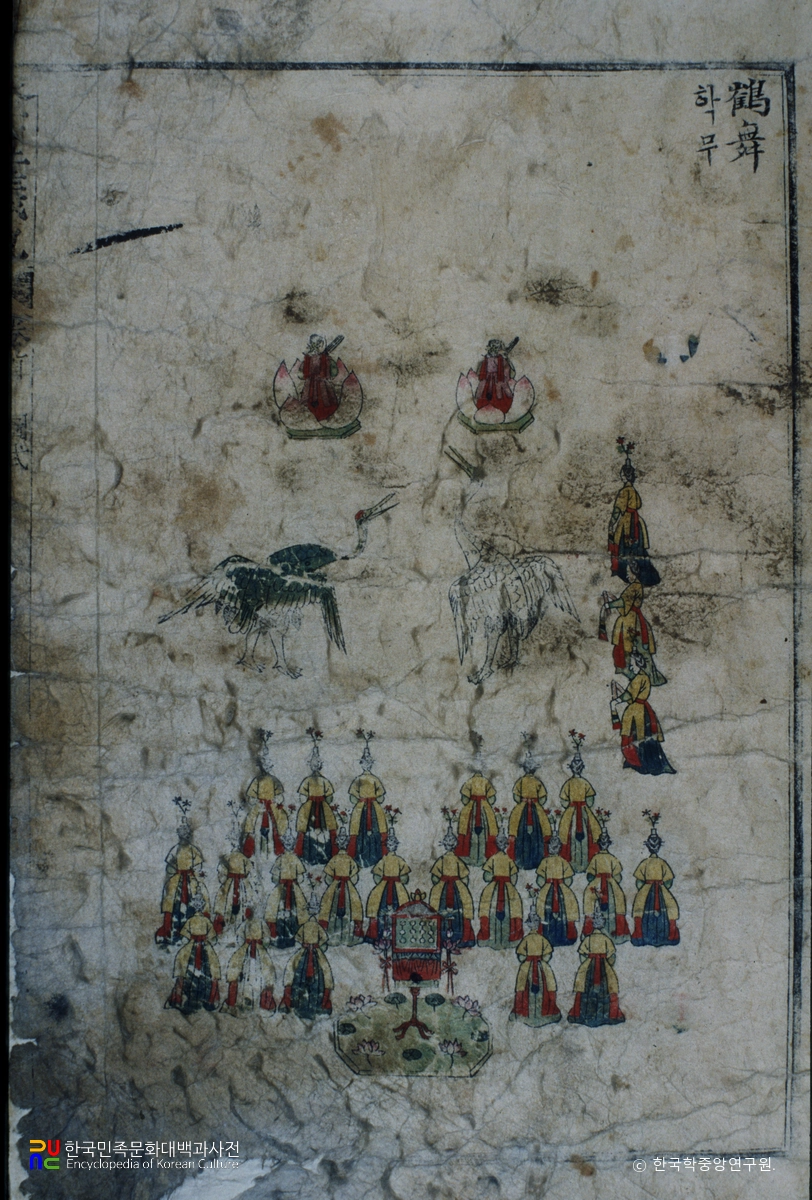 鶴舞
학무
한국민족문화대백과사전
Encyclopedia of Korean Culture
© 한국학중앙연구원.